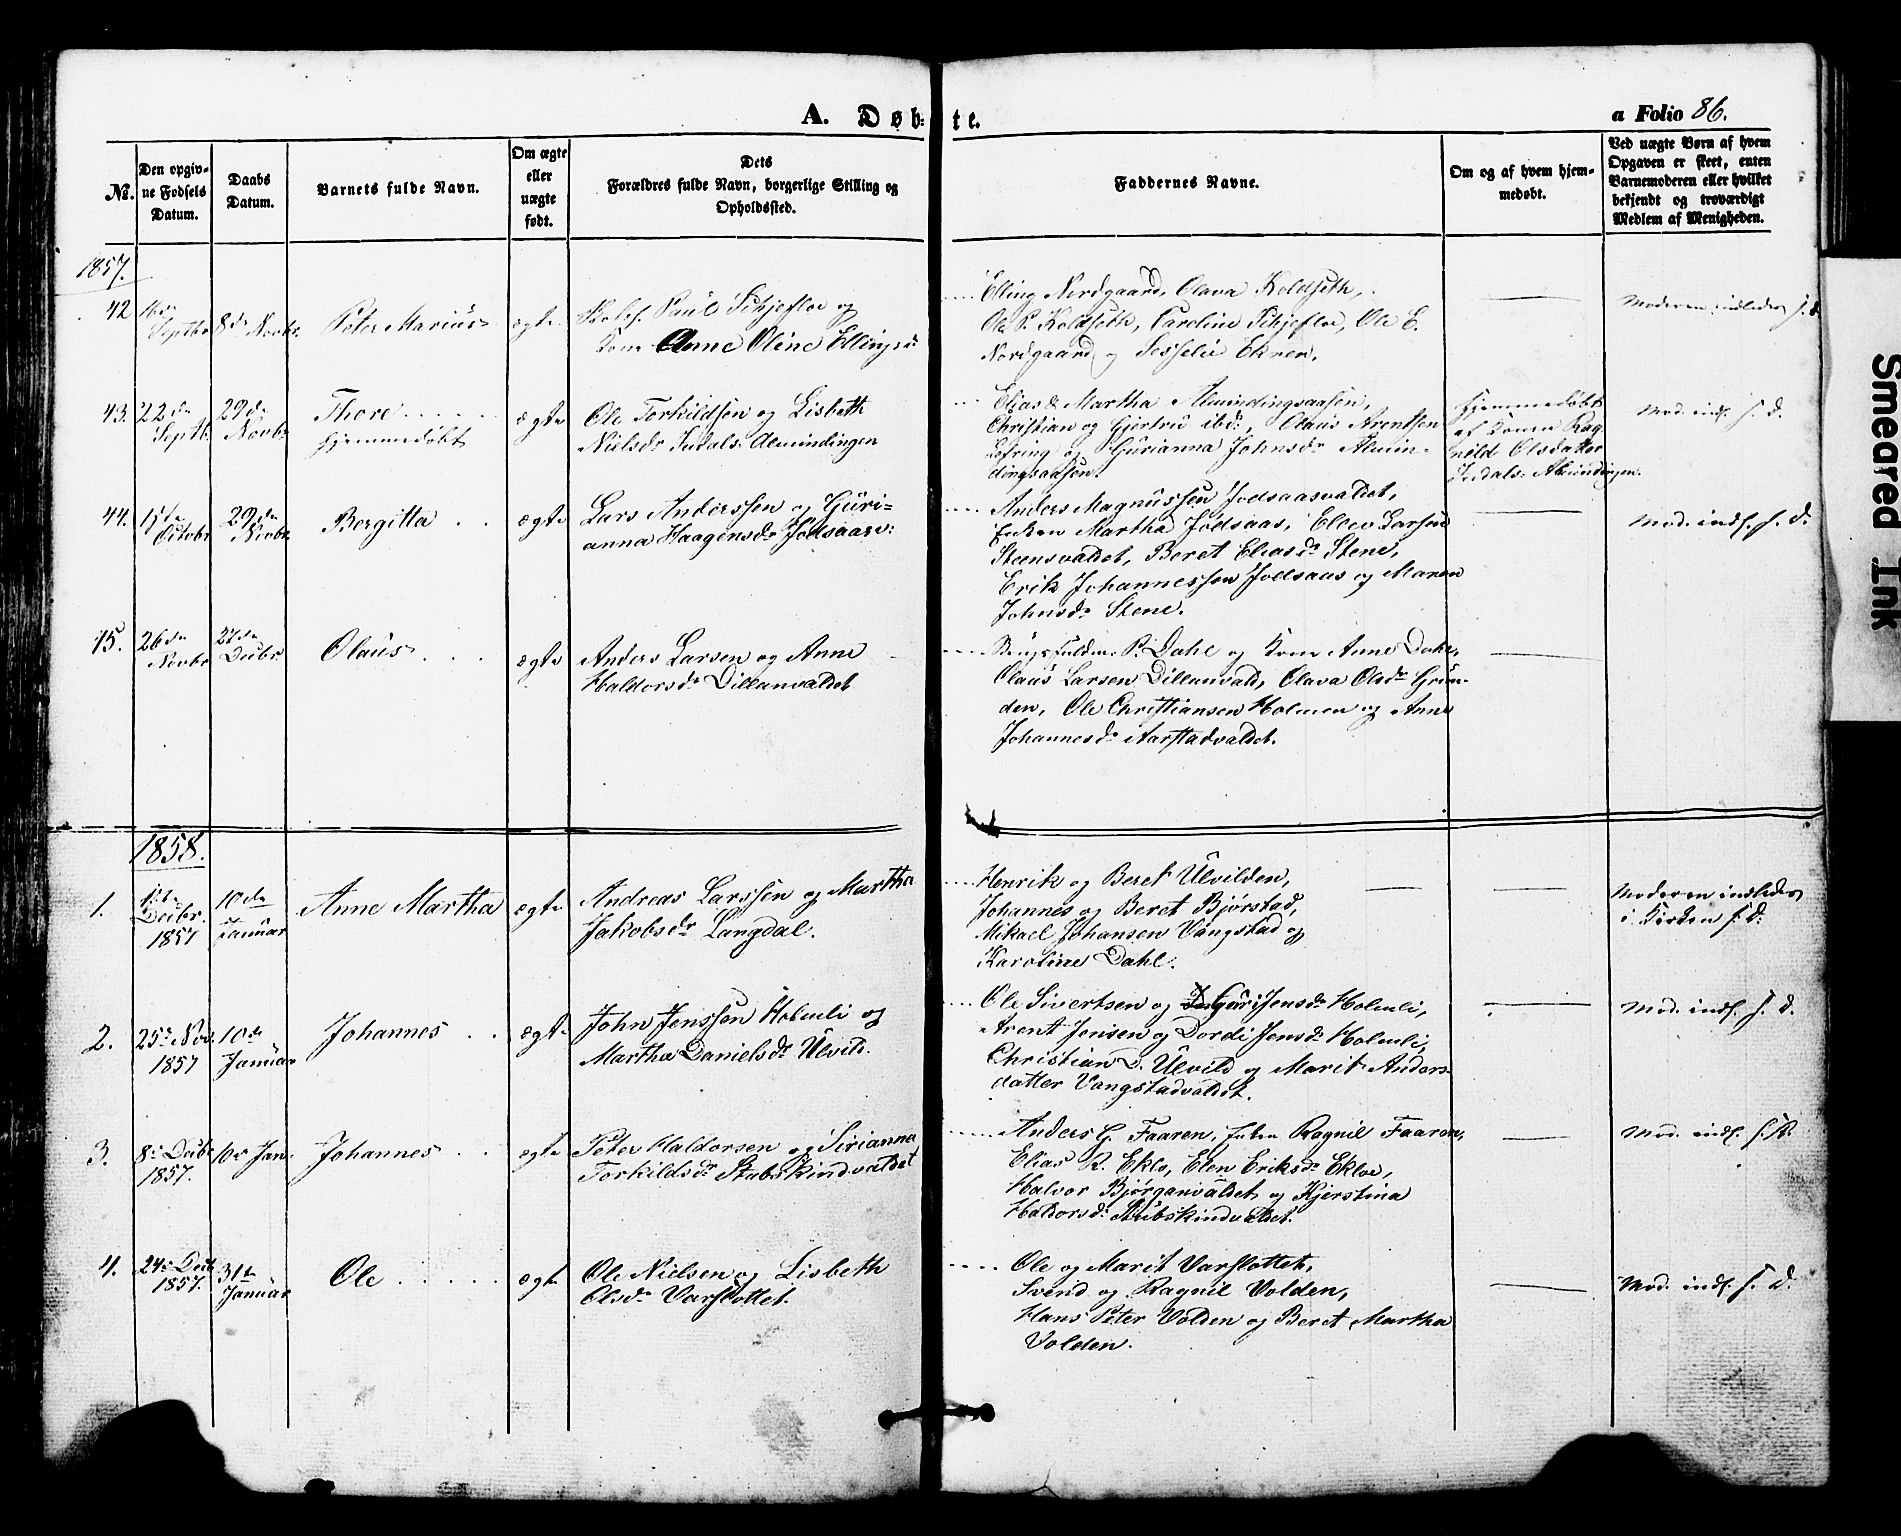 A. Døb: te.
a Folio 86.
No.
Den opgiv-
ne Fødsels
Datum.
Daabs
Datum.
Barnets fulde Navn.
Om ægte
eller
uægte
født.
Dets
Forældres fulde Navn, borgerlige Stilling og
Opholdssted.
Faddernes Navne.
Om og af hvem hjem-
medøbt.
Ved uægte Børn af hvem
Opgaven er skeet, enten
Barnemoderen eller hvilket
bekjendt og troværdigt
Medlem af Menigheden.
1857.
42
16de
Septbr
8de Novbr.
Peter Marius
ægte
Paul Schjefloe og
Kone Anne Oline Ellingsd
Elling Nordgaard, Olava Koldseth,
Ole P. Koldseth, Caroline Schjefloe, Ole E.
Nordgaard og Sesselie Ekren.
Moderen indledes s. d.
43.
22de
Septb.
29de
Novbr
Thore
hjemmedøbt
ægte
Ole Torkildsen og Lisbeth
Nielsdr Indals: Almindingen
Elias & Martha Almindingsaasen,
Christian og Gjertrud ibd:, Olaus Arentsen
og Gurianna Johnsdr Almin-
dingsaasen.
hjemmedøbt
af Konen Rag
nild Olsdatter
Indals: Almindingen.
Mod. indl. s. d.
44.
15de
Octobr
29de
Novbr
Bergitta
ægte
Lars Anderssen og Guri=
anna Haagensdr Jødsaasv:
Anders Magnussen Jødsaasvaldet,
Enken Martha Jødsaas, Ellev Larsen
Steensvaldet, Beret Eliasdr Stene,
Erik Johannessen Jødsaas og Maren
Johnsdr Stene.
Mod. indl. s. d.
45.
26de
Novbr
27de
Decbr.
Olaus
ægte
Anders Larsen og Anne
Haldorsdr Dillanvaldet
P. Dahl og Kone Anne Dahl,
Olaus Larsen Dillanvald, Olava Olsdr Grun-
den, Ole Christiansen Holmen og Anne
Johannesdr Aarstadvaldet.
1858.
1.
1ste
Decbr.
1857
10de
Januar
Anne Martha
ægte
Andreas Larssen og Martha
Jakobsdr Langdal.
Henrik og Beret Ulvilden,
Johannes og Beret Bjørstad,
Mikael Johansen Vangstad og
Karoline Dahl.
Moderen indledes
i Kirken s. d.
2.
25de Nov.
1857
10de
Januar
Johannes
ægte
John Jenssen Holmli og
Martha Danielsdr Ulvild.
Ole Sivertsen og Guri Jensdr Holmli,
Arent Jensen og Dordi Jensdr Holmli,
Christian D. Ulvild og Marit Anders-
datter Vangstadvaldet.
Mod. indl. s. d.
3.
8de Decbr
1857.
10de Jan.
Johannes
ægte
Peter Haldorsen og Sirianna
Torkildsdr Stubskindvaldet
Anders G. Faaren, Enken Ragnil Faaren,
Elias R. Eklo, Elen Eriksdr Ekloe,
Halvor Bjørganvaldet og Kjerstina
Haldorsdr Stubskindvaldet.
Mod. indl. s. d.
4.
24de Decb
1857.
31te
Januar
Ole
ægte
Ole Nielsen og Lisbeth
Olsdr Varslottet.
Ole og Marit Varslottet,
Svend og Ragnil Volden,
Hans Peter Volden og Beret Martha
Volden.
Mod. indl. s. d.
Smeared Ink